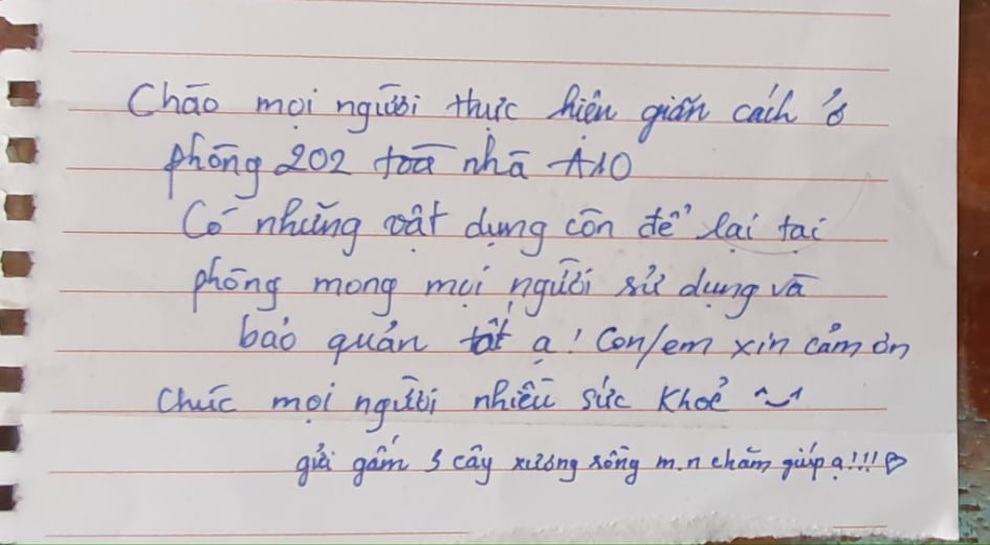 Chào mọi người thực hiện giãn cách ở
phòng 202 toà nhà A10
Có những vật dụng còn để lại tại
phòng mong mọi người sử dụng và
bảo quản tốt ạ! Con/em xin cảm ơn
Chúc mọi người nhiều sức khoẻ ~
gửi gắm 3 cây xương rồng m.n chăm giúp ạ!!! ♡